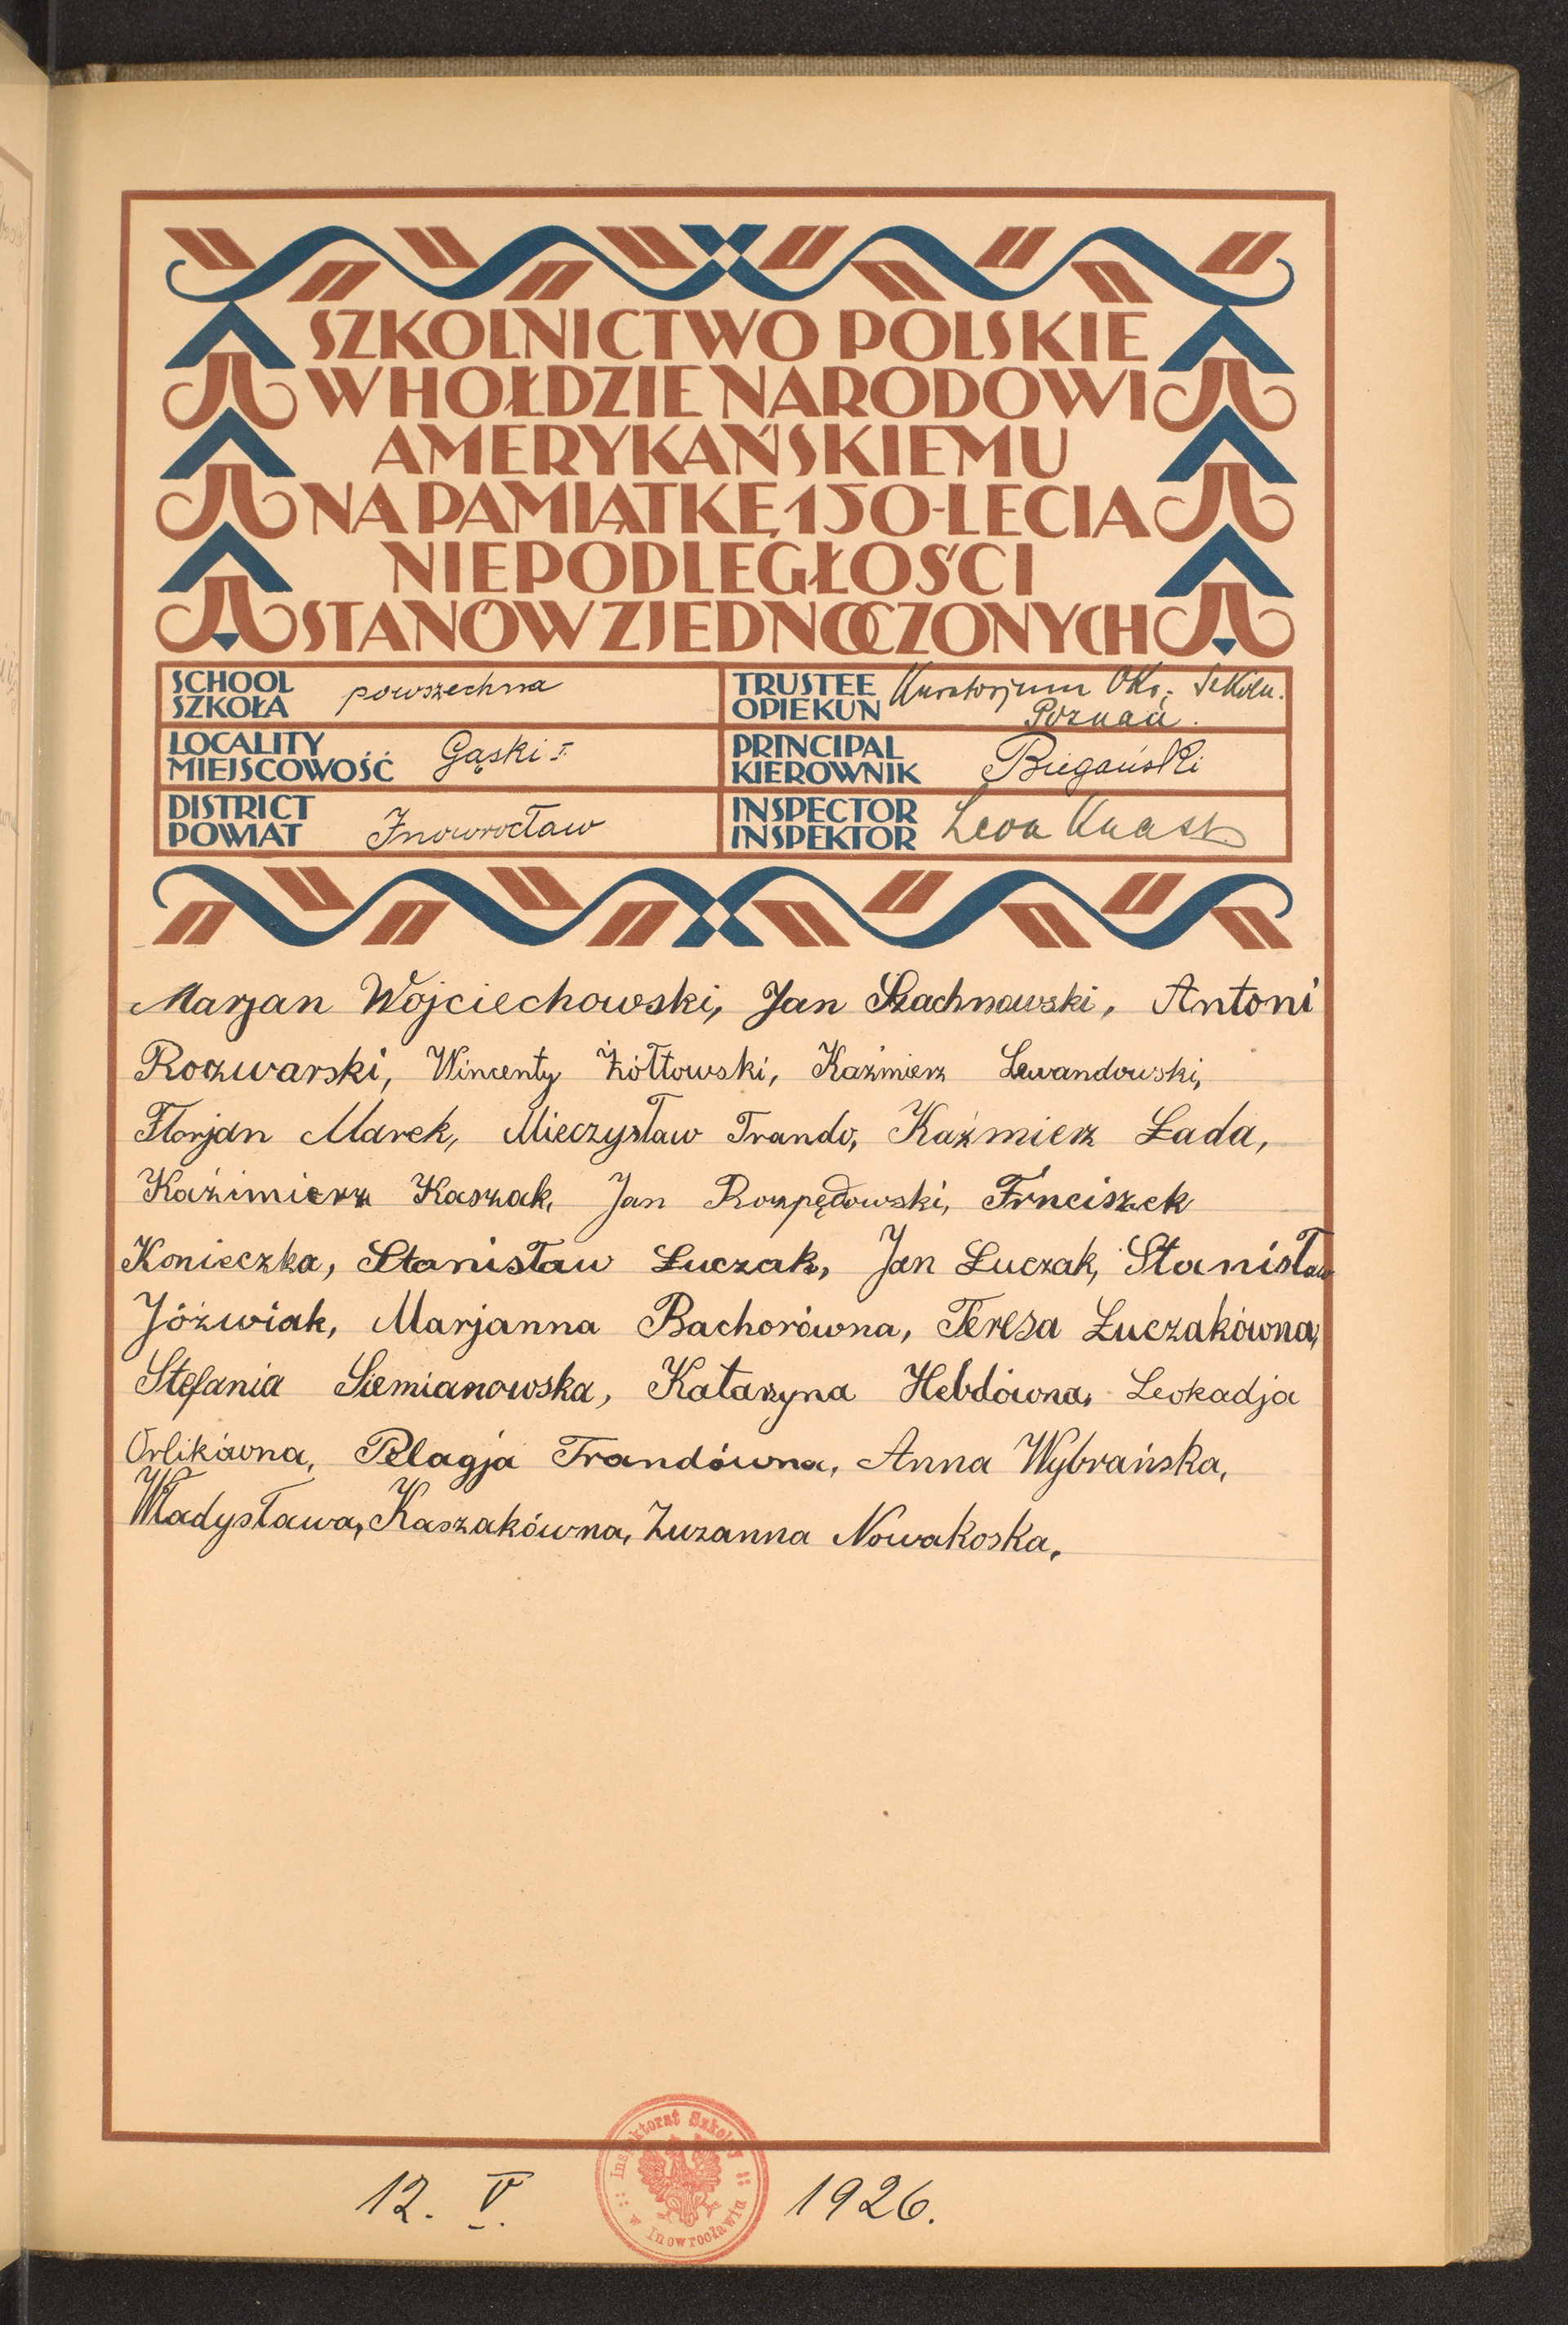 SZKOLNICTWO POLSKIE
W HOŁDZIE NARODOWI
AMERYKAŃSKIEMU
NA PAMIĄTKĘ 150-LECIA
NIEPODLEGŁOŚCI
STANÓW ZJEDNOCZONYCH
SCHOOL
SZKOŁA
powszechna
TRUSTEE
OPIEKUN
Kuratorjum Okr. Szkoln.
Poznań.
LOCALITY
MIEJSCOWOŚĆ
Gąski I.
PRINCIPAL
KIEROWNIK
Biegański
DISTRICT
POWIAT
Inowrocław
INSPECTOR
INSPEKTOR
Leon Knast
Marjan Wojciechowski, Jan Szachnowski, Antoni
Roczwarski, Wincenty Żółtowski, Kaźmierz Lewandowski,
Florjan Marek, Mieczysław Trando, Kaźmierz Łada,
Kaźimierz Kaszak, Jan Rozpędowski, Frnciszek
Konieczka, Stanisław Łuczak, Jan Łuczak, Stanisław
Jóźwiak, Marjanna Bachorówna, Teresa Łuczakówna,
Stefania Siemianowska, Katarzyna Hebdówna, Leokadja
Orlikówna, Pelagja Trandówna, Anna Wybrańska,
Władysława, Kaszakówna, Zuzanna Nowakoska.
Inspektorat Szkolny
w Inowrocławiu
12. V. 1926.